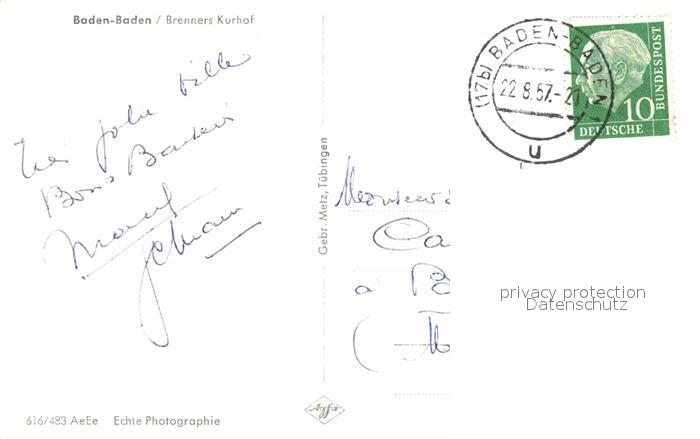 Baden-Baden / Brenners Kurhof
Très jolie ville
Bons Baisers
Gebr. Metz, Tübingen
(17b) BADEN-BADEN 1
22.8.57.-21
u
10
DEUTSCHE
BUNDESPOST
Monsieur
Ca
à
(
privacy protection
Datenschutz
Agfa
616/483 AeEe Echte Photographie